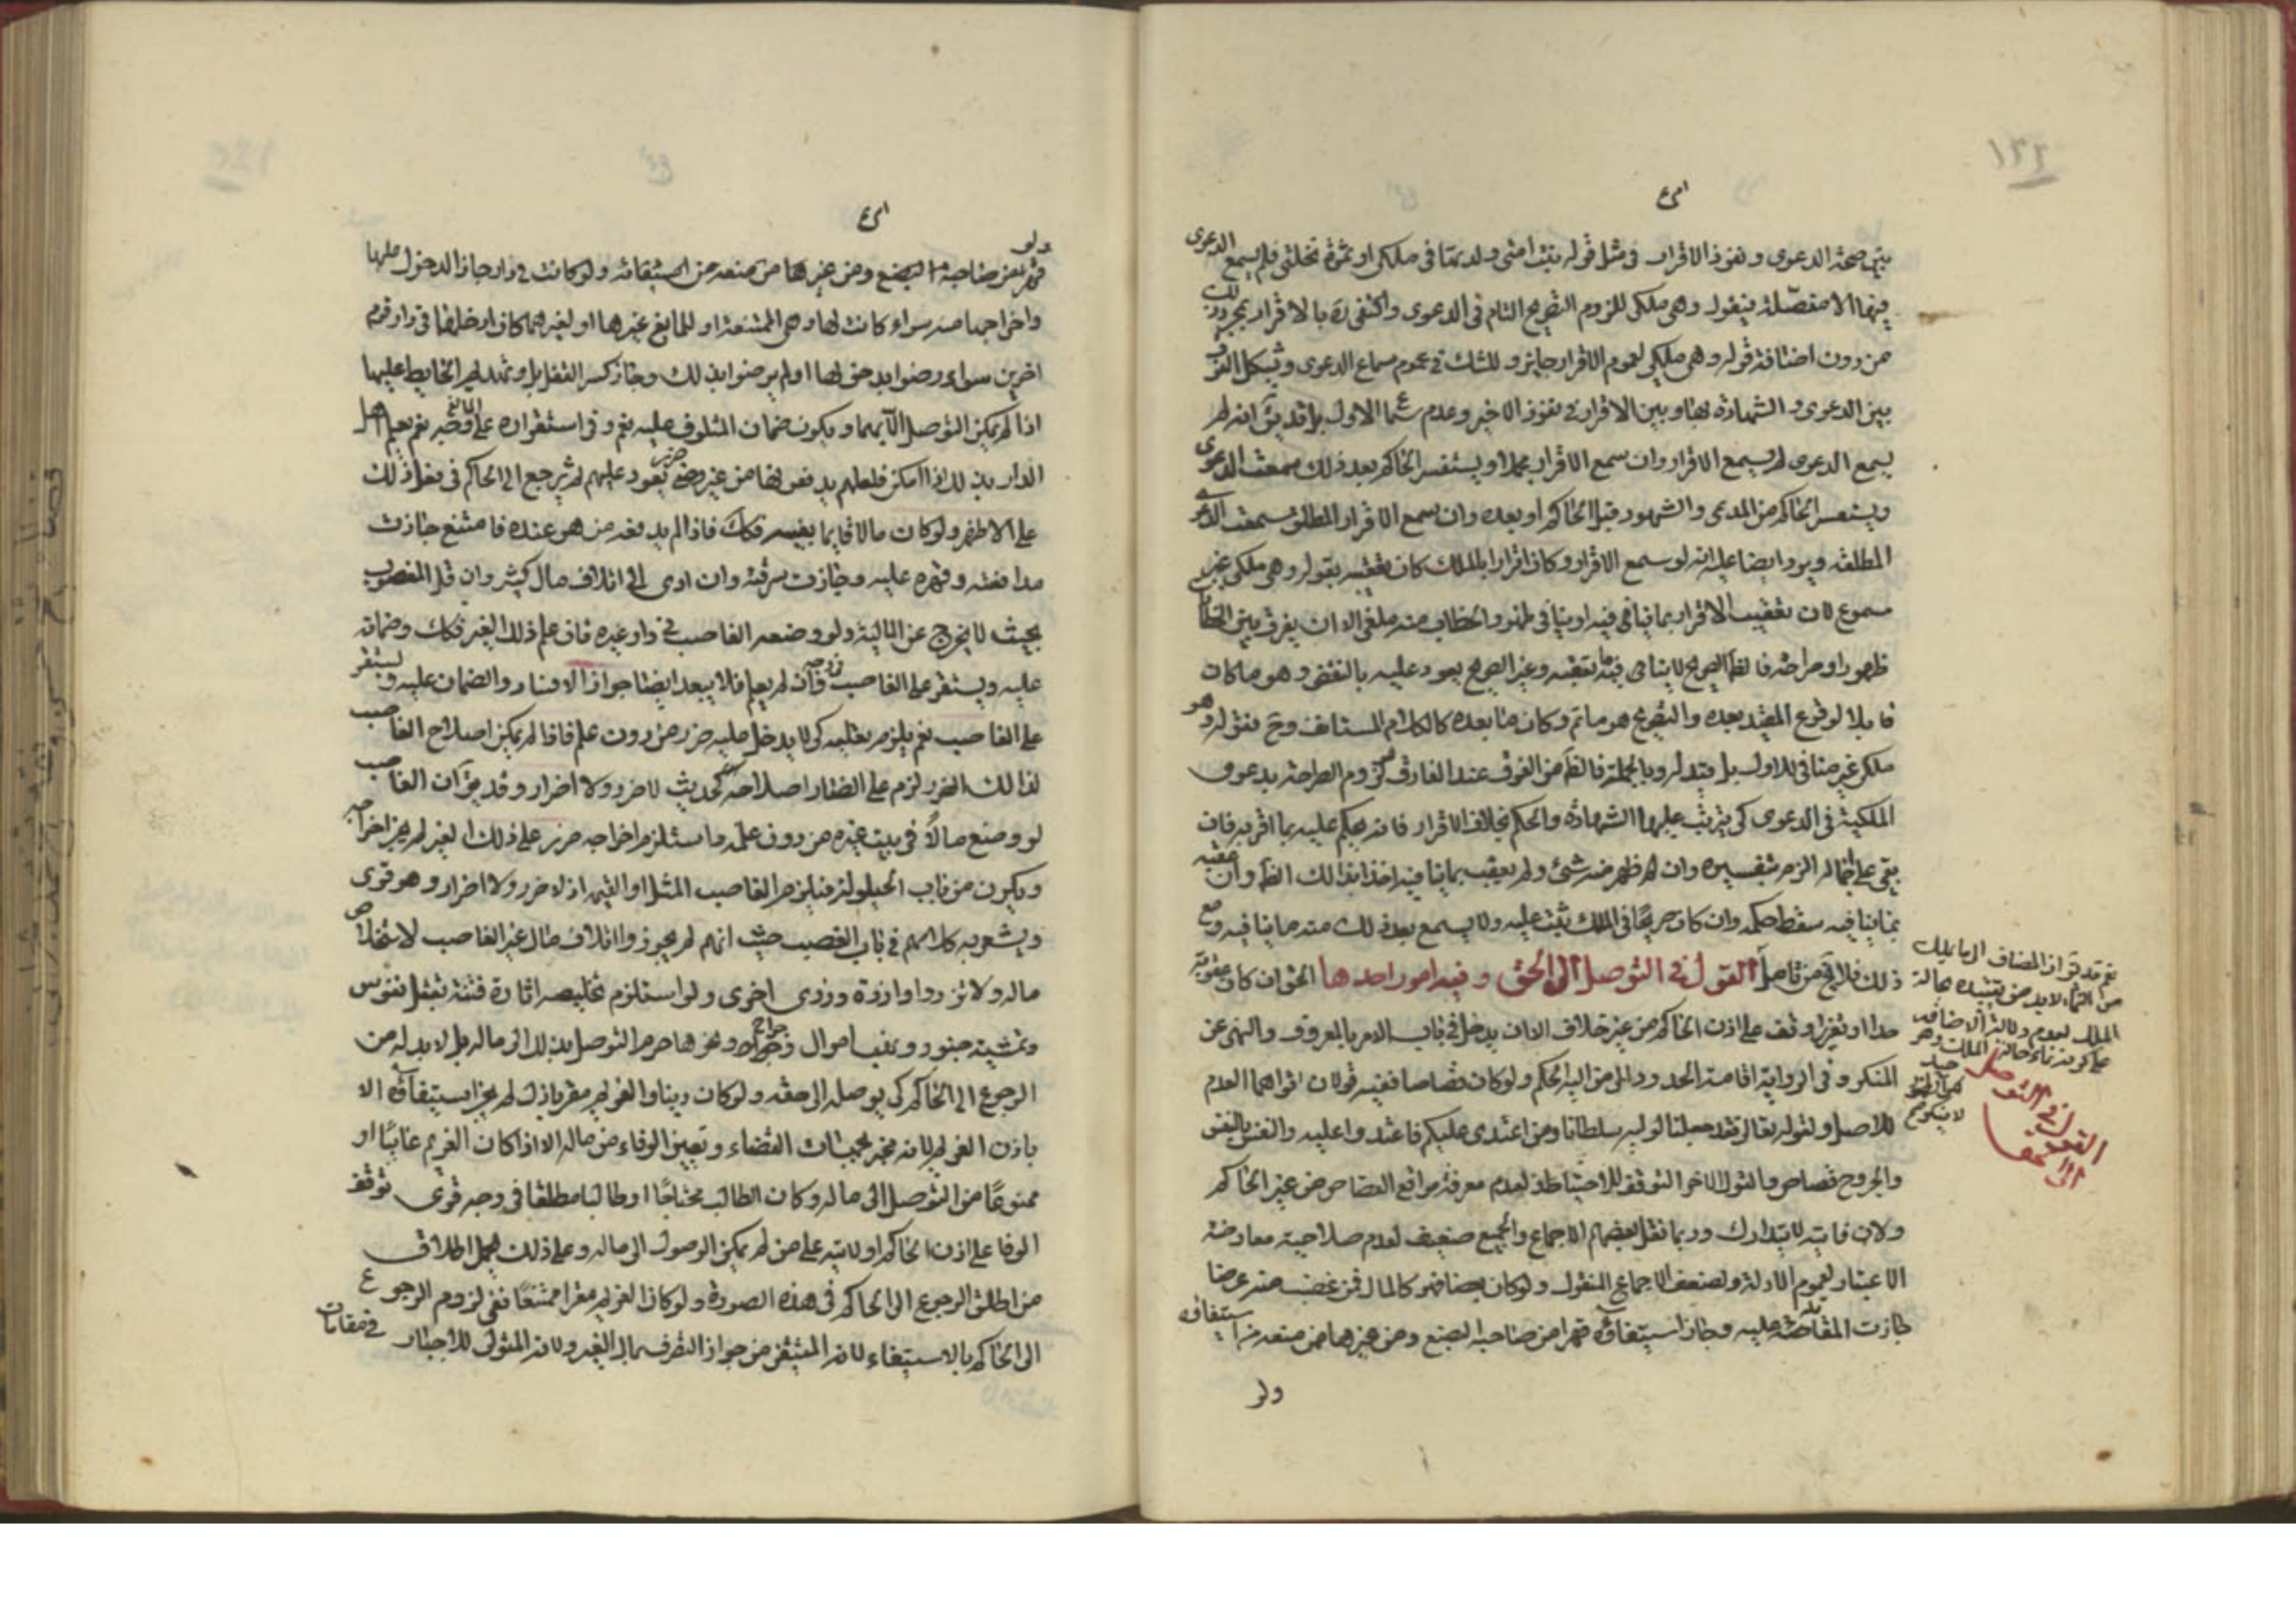 بين صحة الدعوى ونفوذ الاقرار في مثل قوله بنت امتي ولدتها في ملكي او ثمرة نخلتي فلم يسمع الدعوى
فيهما الا مفصلة فيقول وهي ملكي للزوم التصريح التام في الدعوى واكتفى بالاقرار بمجرد ذلك
من دون اضافة قوله وهي ملكي لعموم الاقرار جايز وللشك في عموم سماع الدعوى ويشكل الفرق
بين الدعوى والشهادة لها وبين الاقرار في نفوذ الاخير وعدم سماع الاول بل قد يق انه لم
يسمع الدعوى لم يسمع الاقرار وان سمع الاقرار مجملا ويستفسر الحاكم بعد ذلك سمعت الدعوى
ويستفسر الحاكم من المدعي والشهود قبل الحاكم او بعده وان سمع الاقرار المطلق سمعت الدعوى
المطلقة ويرد ايضا عليه انه لو سمع الاقرار وكان اقرارا بالملك كان تعقيبه بقوله وهي ملكي غير
مسموع لان تعقيب الاقرار بما ينافيه
ظهورا وصراحة
قابلا لوقوع القيد بعده والتصريح هو ما تم وكان ما بعده كالكلام المستانف وح فقوله وهو
ملكي غير مناف للاول بل مقيد له وبالجملة فالظ من الفرق عند الفارق لزوم الصراحة بدعوى
الملكية في الدعوى كي يترتب عليها الشهادة والحكم بخلاف الاقرار فانه يحكم عليه بما اقر به فان
بقي على اجماله الزم بتفسيره وان ظهر منه شيء ولم يعقب بما ينافيه اخذ بذلك الظ وان عقبه
بما ينافيه سقط حكمه وان كان صريحا في الملك ثبت عليه ولا يسمع بعد ذلك منه ما ينافيه ومع
ذلك فلا يخ من تامل القول في التوصل الى الحق وفيه امور احدها الحق ان كان عقوبة
حدا او تعزيرا وقف على اذن الحاكم من غير خلاف الا ان يدخل في باب الامر بالمعروف والنهي عن
المنكر وفي الرواية اقامة الحدود الى من اليه الحكم ولو كان قصاصا ففيه قولان اقواهما العدم
للاصل ولقوله تعالى فقد جعلنا لوليه سلطانا ومن اعتدى عليكم فاعتدوا عليه والنفس بالنفس
والجروح قصاص والقول الاخر التوقف للاحتياط لعدم معرفة مواقع القصاص من غير الحاكم
ولان فايته لا يتدارك وربما نقل بعضهم الاجماع والجميع ضعيف لعدم صلاحية معارضة
الاعتبار لعموم الادلة ولضعف الاجماع المنقول ولو كان بضاضهو كالمال فمن غصب منه عرضا
جازت المقاصة عليه وجاز استيفاؤه قهرا من صاحبه البضع ومن غيرهما ممن منعه من استيفائه
ولو
نعم قد يق ان المضاف الى ما يملك
من النماء لا بد من تقييده بحالة
الملك لعدم دلالة الاضافة
على كونه نماء حالة الملك وهو
جيد
القول في التوصل
الى الحق
واخراجها منه سواء كانت لها وهي الممتنعة او للمانع غيرها او لغيرهما كان ادخلها في دار قوم
اخرين سواء رضوا بدخولها او لم يرضوا بذلك وجاز كسر القفل بل وتهديم الحايط عليها
اذا لم يمكن التوصل الا بهما ويكون ضمان المتلوف عليه نعم وفي استقراره على المانع وجه نعم يعلم اهل
الدار بذلك اذا امكن فلعلهم يدفعونها من غير ضرر يعود عليهم ثم يرجع الى الحاكم في فعل ذلك
على الاظهر ولو كان مالا قايما بنفسه فكك فاذا لم يدفعه من هو عنده فامتنع جازت
مدافعته وقهره عليه وجازت سرقته وان ادى الى اتلاف مال كثير وان قل المغصوب
بحيث لا يخرج عن المالية ولو وضعه الغاصب في دار غيره فان علم ذلك الغير فكك وضمانه
عليه ويستقر على الغاصب وان لم يعلم فلا يبعد ايضا جواز الافساد والضمان عليه ويستقر
على الغاصب نعم يلزم كي لا يدخل عليه ضرر من دون علم فاذا لم يمكن اصلاح الغاصب
لذلك الضرر لزم على اصلاحه لحديث لا ضرر ولا اضرار وقد يق ان الغاصب
لو وضع مالا في بيت غيره من دون علمه ما ستلزم اخراجه ضرر على ذلك الغير لم يجز اخراجه
ويكون من باب الحيلولة فيلزم الغاصب المثل او القيمة اذ لا ضرر ولا اضرار وهو قوى
ويشعر به كلامهم في باب الغصب حيث انهم لم يجوزوا اتلاف مال غير الغاصب لاستخلاص
ماله ولا تزر وازرة وزر اخرى ولو استلزم تخليصه اثارة فتنة بقتل نفوس
وتمشية جنود ونهب اموال وجراح ونحوها حرم التوصل بذلك الى ماله بل لا بد له من
الرجوع الى الحاكم كي يوصله الى حقه ولو كان دينا والغريم مقر باذل لم يجز استيفاؤه الا
باذن الغريم لانه مخير بجهات القضاء وتعيين الوفاء من ماله الا اذا كان الغريم غايبا او
ممنوعا من التوصل الى ماله وكان الطالب محتاجا او طالبا مطلقا في وجه قوى توقف
الوفا على اذن الحاكم او لايته على من لم يمكن الوصول الى ماله وعلى ذلك يحمل اطلاق
من اطلق الرجوع الى الحاكم في هذه الصورة ولو كان الغريم مقرا ممتنعا ففي لزوم الرجوع
الى الحاكم بالاستيفاء لانه المتيقن من جواز التصرف بمال الغير ولانه المتولى للاجبار في مقامات